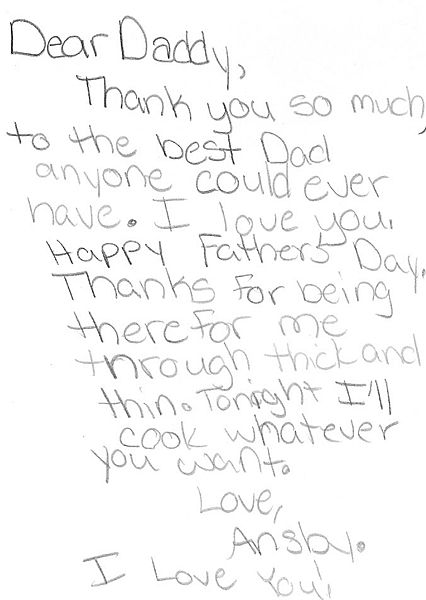 Dear Daddy,
Thank you so much,
to the best Dad
anyone could ever
have. I love you.
Happy Fathers' Day.
Thanks for being
there for me
through thick and
thin. Tonight I'll
cook whatever
you want.
Love,
Ansby.
I Love You!